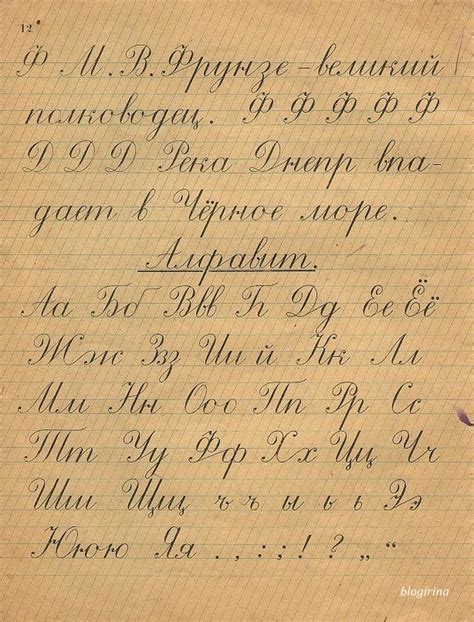 12
Ф М. В. Фрунзе – великий
полководец. Ф Ф Ф Ф Ф
Д Д Д Река Днепр впа-
дает в Чёрное море.
Алфавит.
Аа Бб Ввв Гг Дд Ее Ёё
Жж Ззз Ии й Кк Лл
Мм Нн Ооо Пп Рр Сс
Тт Уу Фф Хх Цц Чч
Шш Щщ ъ ъ ы ь ь Ээ
Ююю Яя . , : ; ! ? „ “
blogirina